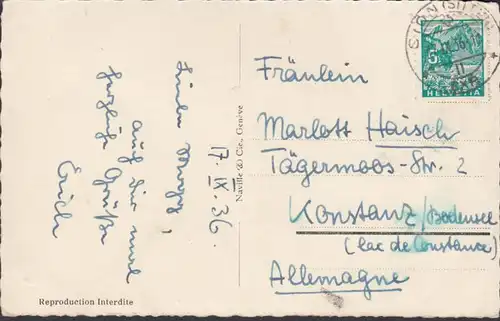 17. IX. 36.
auf dir und
herzliche Grüße
Erich
Reproduction Interdite
Naville & Cie., Genève
SION (SITTEN)
5
HELVETIA
Fräulein
Marlott Haisch
Tägermoos-Str. 2
Konstanz/Bodensee
(lac de Constance)
Allemagne